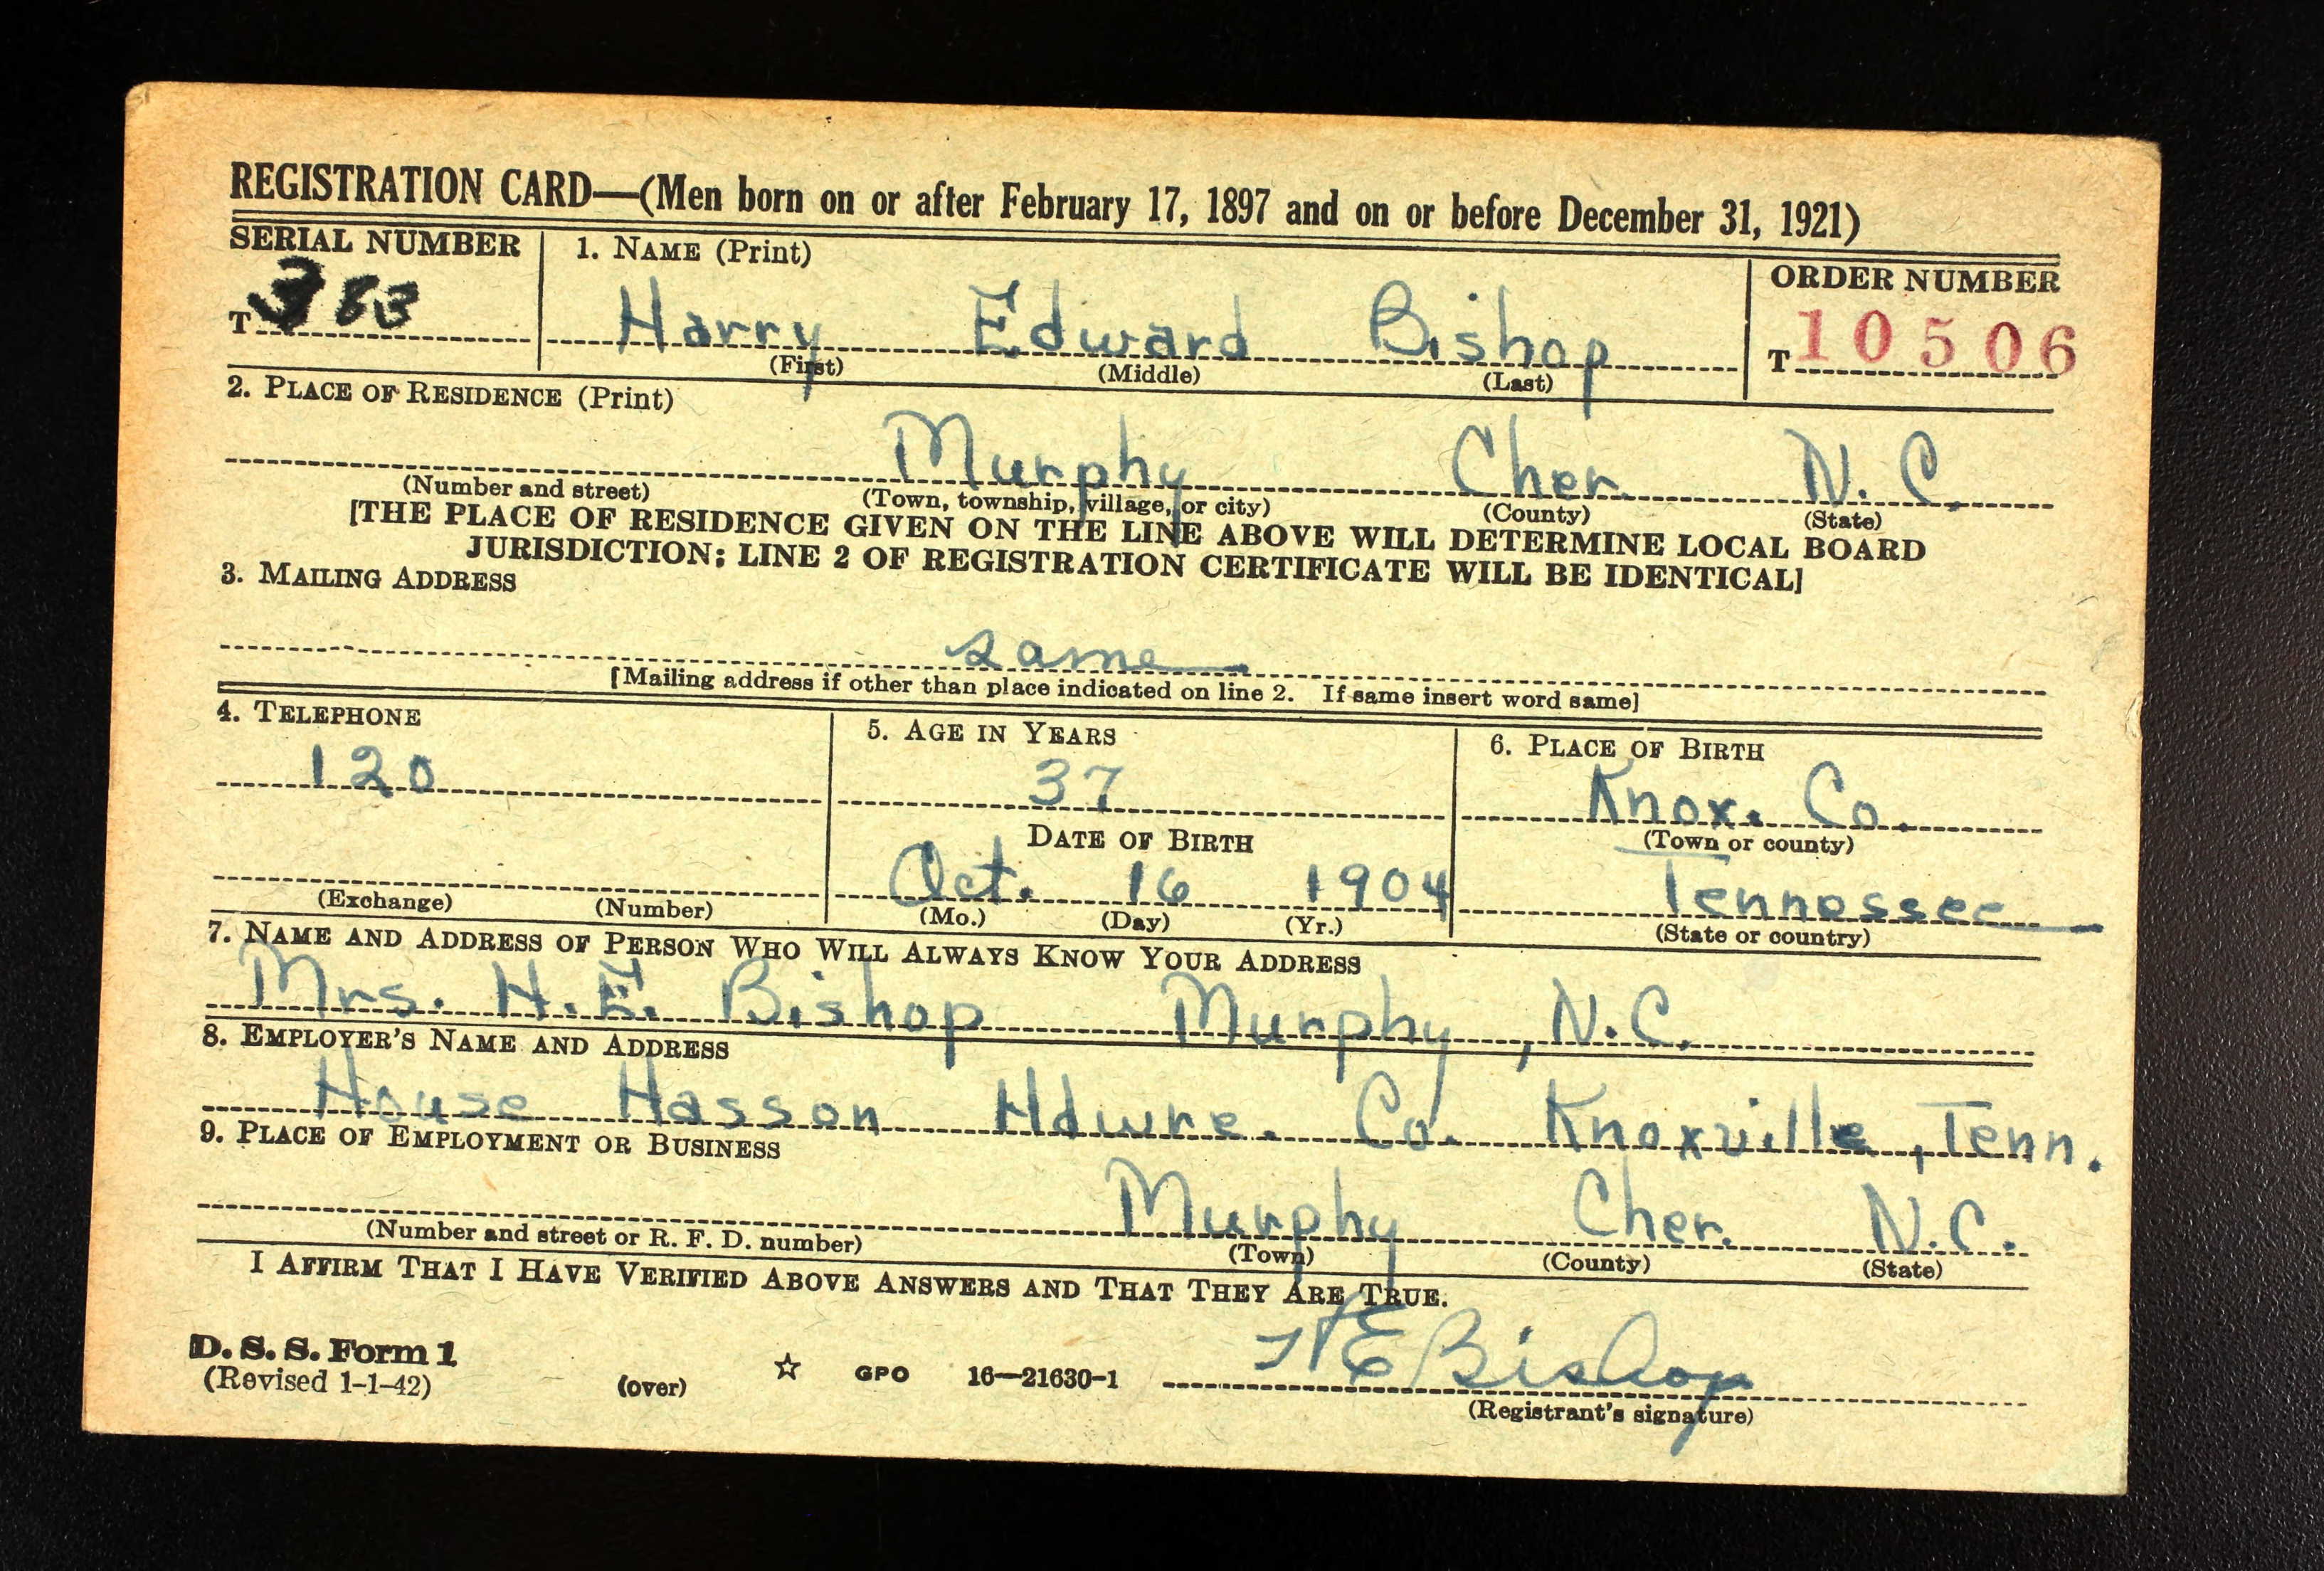 REGISTRATION CARD—(Men born on or after February 17, 1897 and on or before December 31, 1921)
SERIAL NUMBER 1. NAME (Print) ORDER NUMBER
T 383 Harry Edward Bishop T 10506
(First) (Middle) (Last)
2. PLACE OF RESIDENCE (Print)
Murphy Cher. N. C.
(Number and street) (Town, township, village, or city) (County) (State)
[THE PLACE OF RESIDENCE GIVEN ON THE LINE ABOVE WILL DETERMINE LOCAL BOARD
JURISDICTION; LINE 2 OF REGISTRATION CERTIFICATE WILL BE IDENTICAL]
3. MAILING ADDRESS
same
[Mailing address if other than place indicated on line 2. If same insert word same]
4. TELEPHONE 5. AGE IN YEARS 6. PLACE OF BIRTH
120 37 Knox. Co.
DATE OF BIRTH (Town or county)
Oct. 16 1904 Tennessee
(Exchange) (Number) (Mo.) (Day) (Yr.) (State or country)
7. NAME AND ADDRESS OF PERSON WHO WILL ALWAYS KNOW YOUR ADDRESS
Mrs. H.E. Bishop Murphy, N.C.
8. EMPLOYER'S NAME AND ADDRESS
House Hasson Hdwre. Co. Knoxville, Tenn.
9. PLACE OF EMPLOYMENT OR BUSINESS
Murphy Cher. N.C.
(Number and street or R. F. D. number) (Town) (County) (State)
I AFFIRM THAT I HAVE VERIFIED ABOVE ANSWERS AND THAT THEY ARE TRUE.
D. S. S. Form 1 HE Bishop
(Revised 1-1-42) (over) ☆ GPO 16—21630-1
(Registrant's signature)